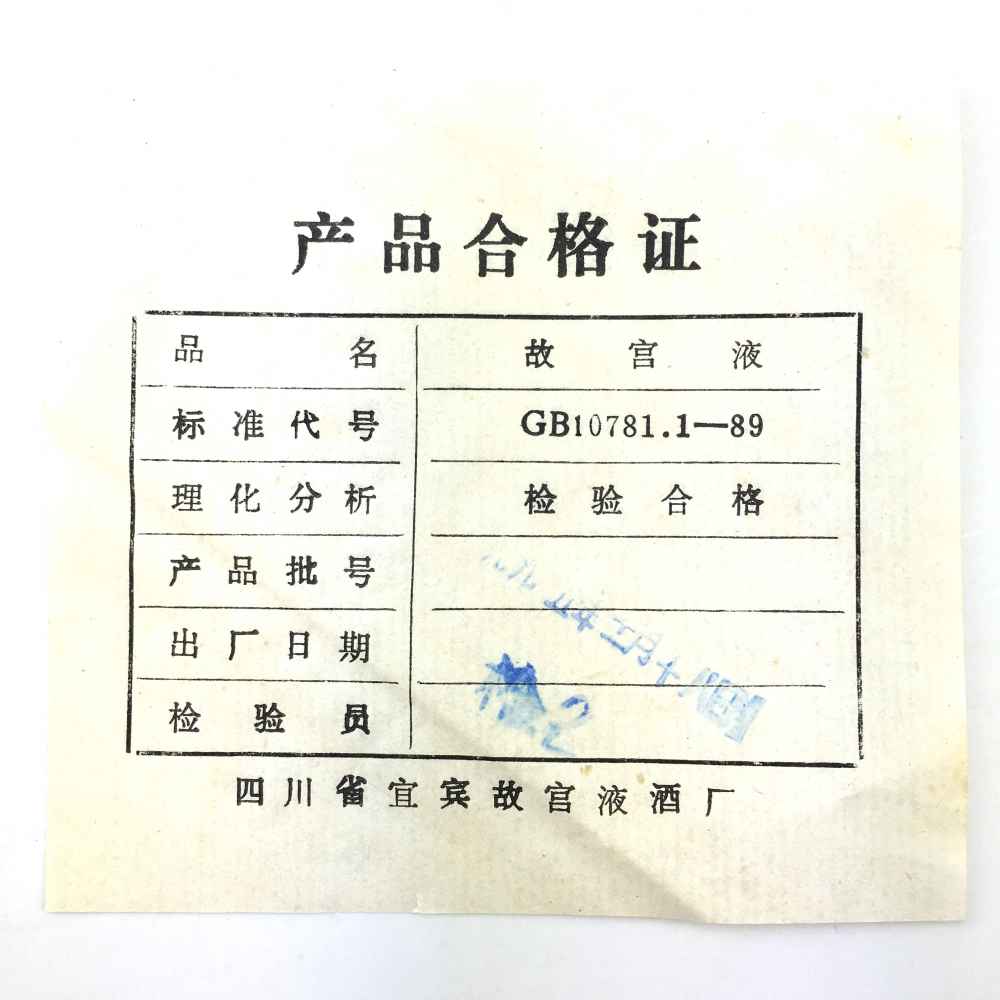 产品合格证
品名 故宫液
标准代号 GB10781.1—89
理化分析 检验合格
产品批号
出厂日期
检验员 检2
四川省宜宾故宫液酒厂